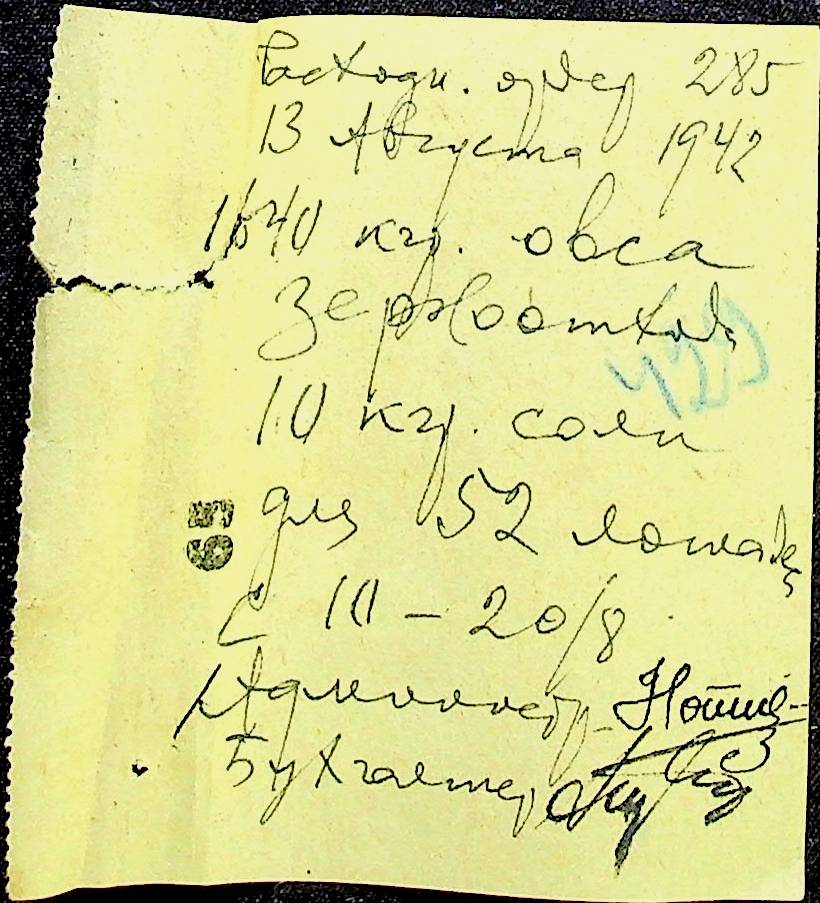 Расходн. ордер 285
13 Августа 1942
1640 кгр. овса
Зерноотхода
10 кгр. соли
для 52 лошадей
С 10 – 20/8
Администр.
Бухгалтер
65